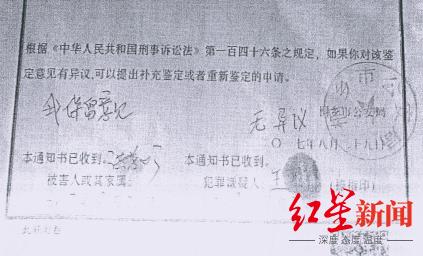 根据《中华人民共和国刑事诉讼法》第一百四十六条之规定，如果你对该鉴
定意见有异议，可以提出补充鉴定或者重新鉴定的申请。
我保留意见
无异议
市公安局
〇七年八月二十九日
本通知书已收到。
本通知书已收到。
被害人或其家属
犯罪嫌疑人 王
（捺指印）
红星新闻
深度 态度 温度
此联附卷